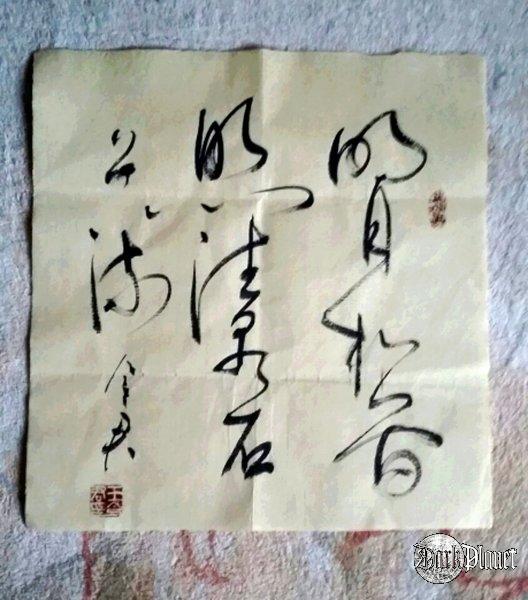 明月松間
照清泉石
上流
DarkPlanet